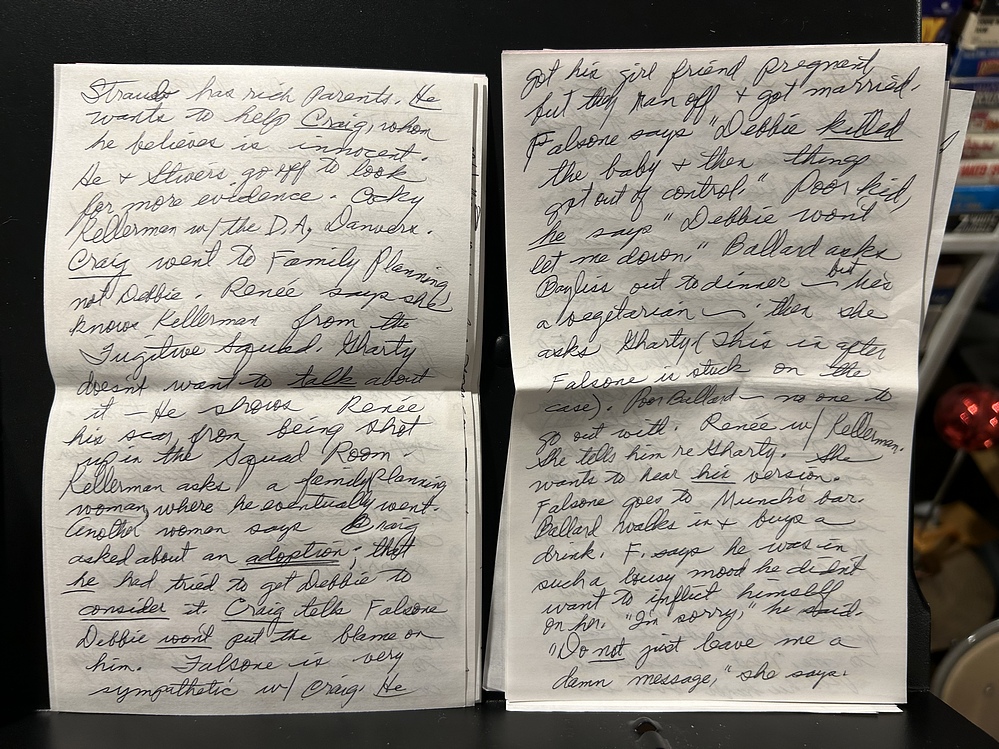 Strauss has rich parents. He
wants to help Craig, whom
he believes is innocent.
He & Stivers go off to look
for more evidence. Cocky
Kellerman w/ the D.A, Danvers.
Craig went to Family Planning
not Debbie. Renée says she
knows Kellerman from the
Fugitive Squad. Gharty
doesn't want to talk about
it – He shows Renée
his scar from being shot
up in the Squad Room.
Kellerman asks a family planning
woman where he eventually went.
Another woman says Craig
asked about an adoption; that
he had tried to get Debbie to
consider it. Craig tells Falsone
Debbie won't put the blame on
him. Falsone is very
sympathetic w/ Craig. He
got his girl friend pregnant
but they ran off & got married.
Falsone says "Debbie killed
the baby & then things
got out of control." Poor kid,
he says "Debbie won't
let me down." Ballard asks
Bayliss out to dinner – but he's
a vegetarian – then she
asks Gharty (This is after
Falsone is stuck on the
case). Poor Ballard – no one to
go out with. Renée w/ Kellerman.
She tells him re Gharty. She
wants to hear his version.
Falsone goes to Munch's bar.
Ballard walks in & buys a
drink. F. says he was in
such a lousy mood he didn't
want to inflict himself
on her. "I'm sorry," he said.
"Do not just leave me a
damn message," she says.